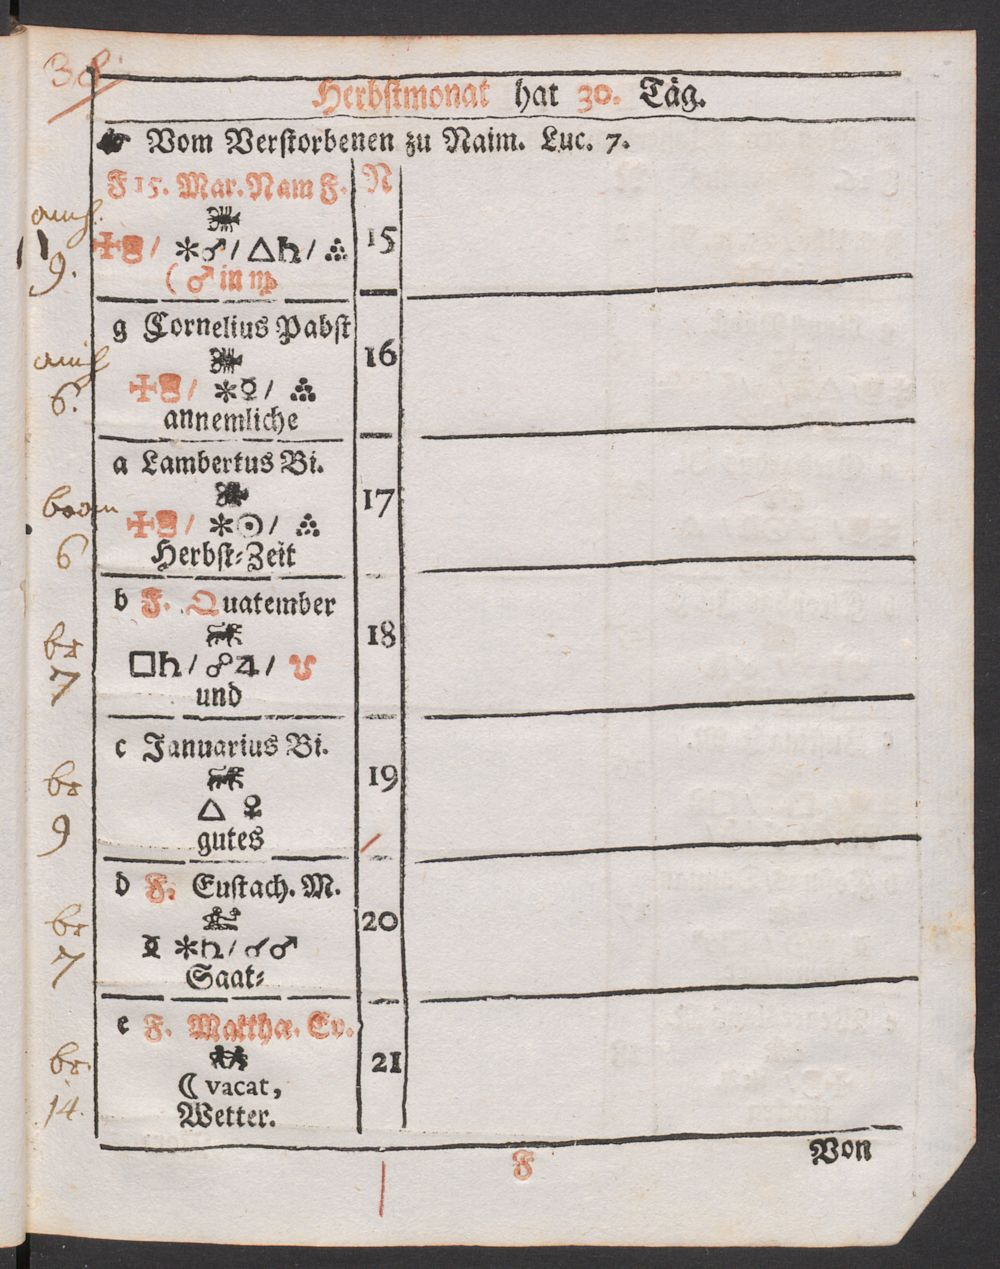 38.
Herbstmonat hat 30. Täg.
☛ Vom Verstorbenen zu Naim. Luc. 7.
F 15. Mar. Nam F. N
15
/ ⚹♂ / △♄ / ஃ
9.
( ♂ in ♍
g Cornelius Pabst
16
/ ⚹☿ / ஃ
6.
annemliche
a Lambertus Bi.
17
/ ⚹☉ / ஃ
6
Herbst-Zeit
b F. Quatember
br
18
□♄ / ☍♃ / ♉
7
und
c Januarius Bi.
br
19
△ ♀
9
gutes
d F. Eustach. M.
br
20
⚹♄ / ☌♂
7
Saat-
e F. Matthæ. Ev.
br.
21
☾ vacat,
14.
Wetter.
Von
F